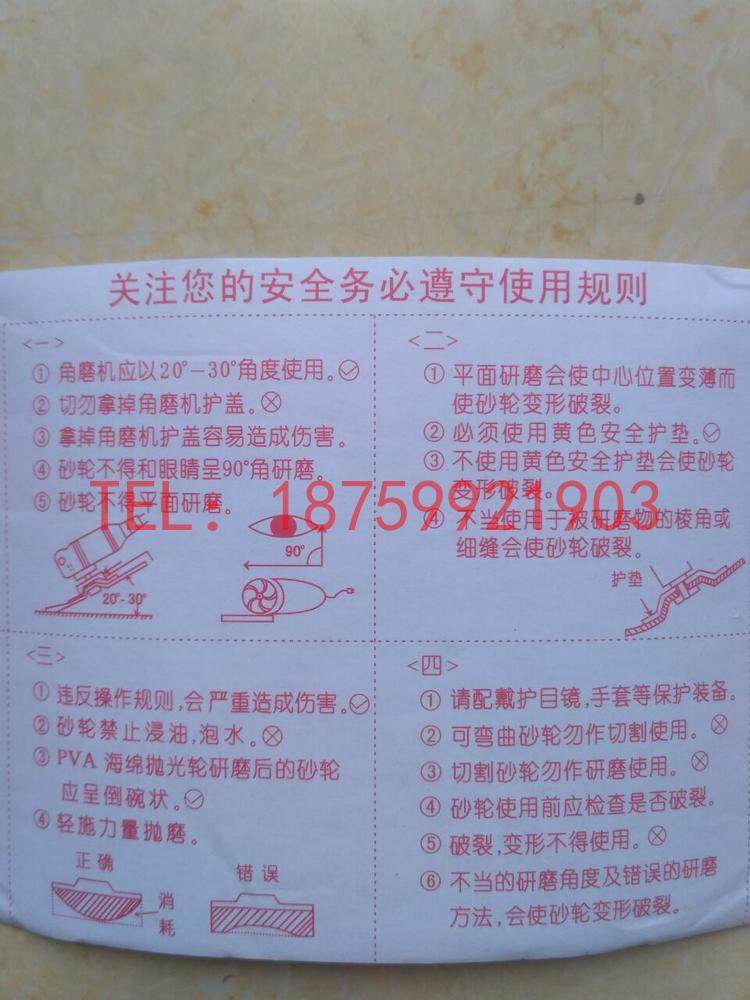 关注您的安全务必遵守使用规则
<一>
① 角磨机应以20°—30°角度使用。
② 切勿拿掉角磨机护盖。
③ 拿掉角磨机护盖容易造成伤害。
④ 砂轮不得和眼睛呈90°角研磨。
⑤ 砂轮不得平面研磨。
20°-30°
90°
<二>
① 平面研磨会使中心位置变薄而
使砂轮变形破裂。
② 必须使用黄色安全护垫。
③ 不使用黄色安全护垫会使砂轮
变形破裂。
④ 不当使用于被研磨物的棱角或
细缝会使砂轮破裂。
护垫
TEL：18759921903
<三>
① 违反操作规则,会严重造成伤害。
② 砂轮禁止浸油,泡水。
③ PVA 海绵抛光轮研磨后的砂轮
应呈倒碗状。
④ 轻施力量抛磨。
正确
消
耗
错误
<四>
① 请配戴护目镜,手套等保护装备。
② 可弯曲砂轮勿作切割使用。
③ 切割砂轮勿作研磨使用。
④ 砂轮使用前应检查是否破裂。
⑤ 破裂,变形不得使用。
⑥ 不当的研磨角度及错误的研磨
方法,会使砂轮变形破裂。